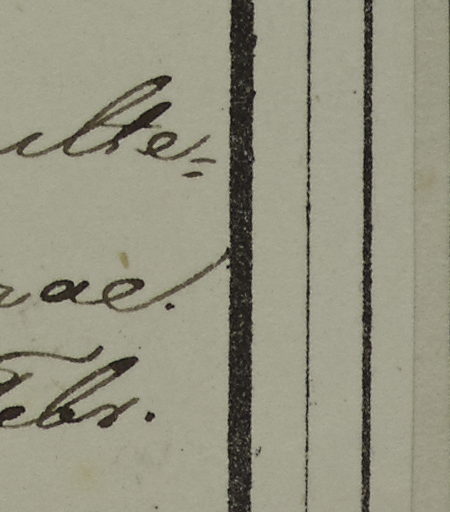 ulte=
rae.
Febr.